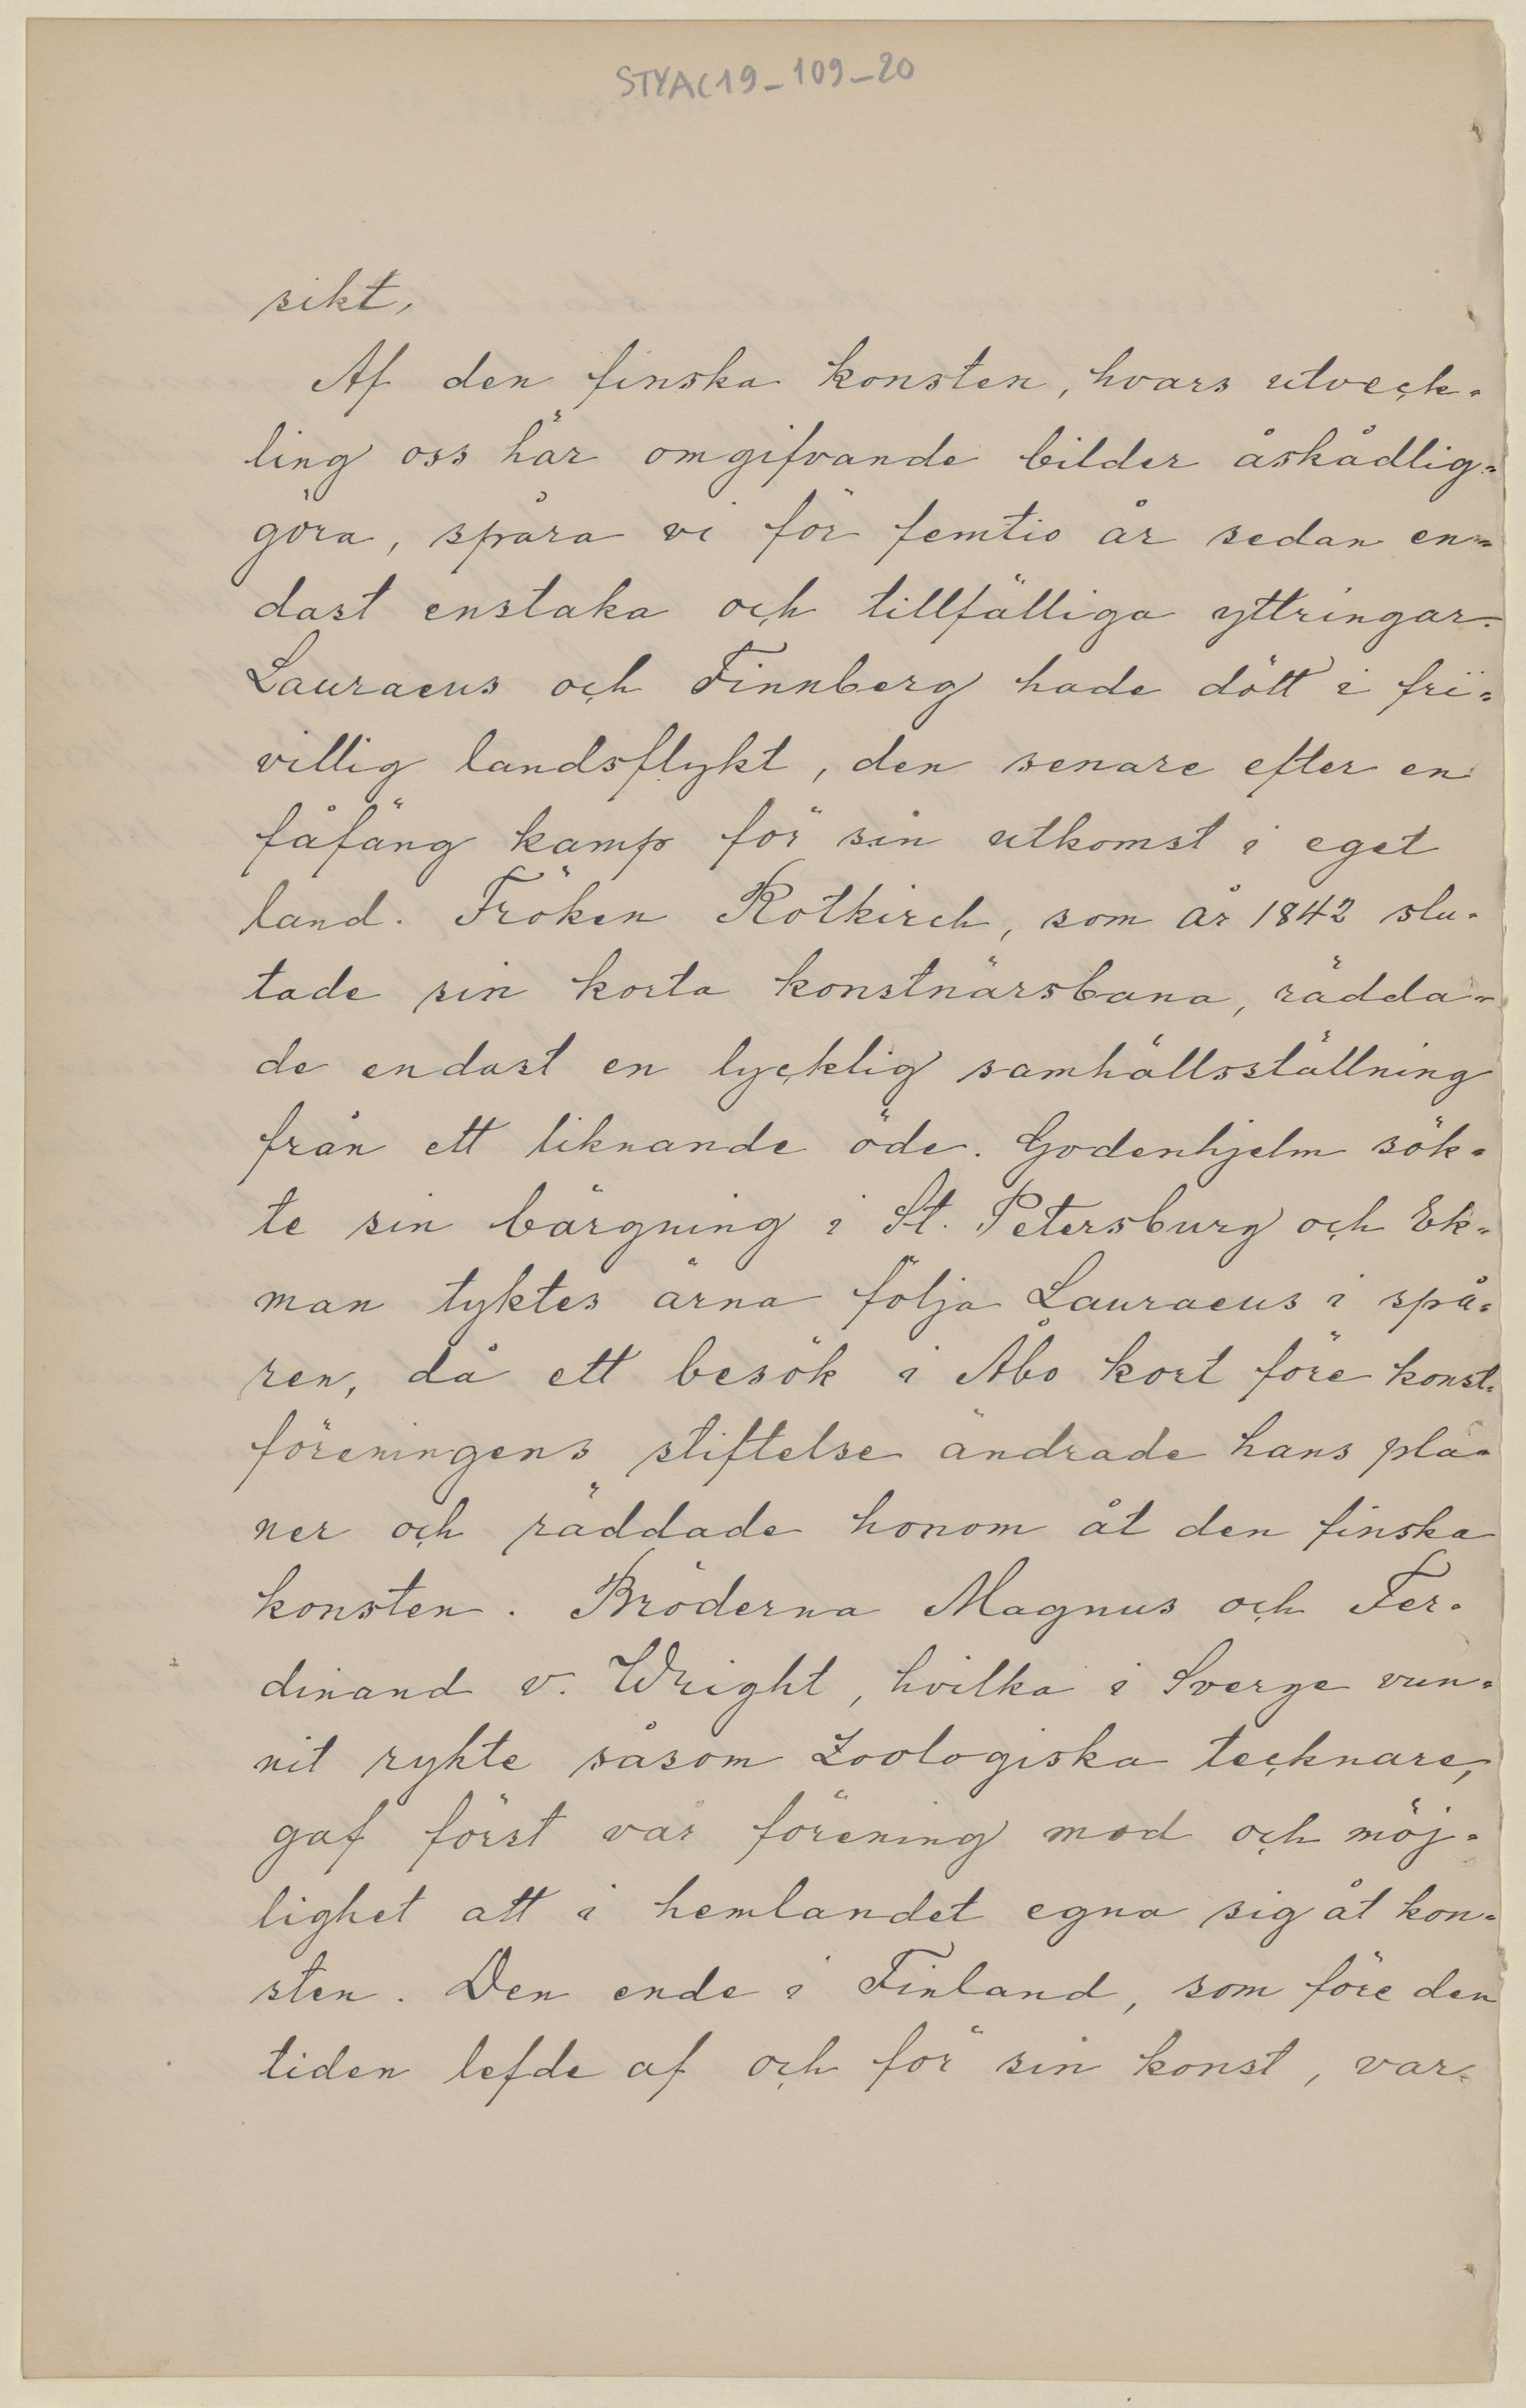 STYAC19-109-20
sikt,
Af den finska konsten, hvars utveck-
ling oss här omgifvande bilder åskådlig-
göra, spåra vi för femtio år sedan en-
dast enstaka och tillfälliga yttringar.
Lauraeus och Finnberg hade dött i fri-
villig landsflykt, den senare efter en
fåfäng kamp för sin utkomst i eget
land. Fröken Rotkirch, som år 1842 slu-
tade sin korta konstnärsbana, rädda-
de endast en lycklig samhällsställning
från ett liknande öde. Godenhjelm sök-
te sin bärgning i St. Petersburg och Ek-
man tyktes ärna följa Lauraeus i spå-
ren, då ett besök i Åbo kort före konst-
föreningens stiftelse ändrade hans plä-
ner och räddade honom åt den finska
konsten. Bröderna Magnus och Fer-
dinand v. Wright, hvilka i Sverge vun-
nit rykte såsom Zoologiska tecknare,
gaf först vår förening mod och möj-
lighet att i hemlandet egna sig åt kon-
sten. Den ende i Finland, som före den
tiden lefde af och för sin konst, var